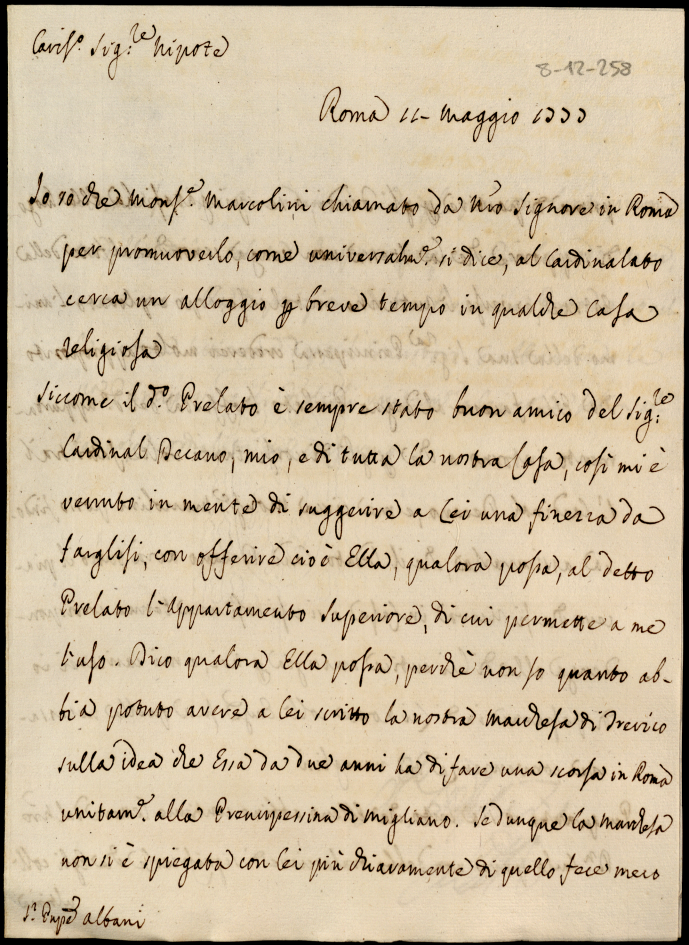 Cariss.o Sig.re Nipote
8-12-258
Roma 11 - Maggio 1777
Io so che Mons.r Marcolini chiamato da Nro Signore in Roma
per promuoverlo, come universalm.e si dice, al Cardinalato
cerca un alloggio p breve tempo in qualche Casa
religiosa
Siccome il d.o Prelato è sempre stato buon amico del Sig.re
Cardinal Decano, mio, e di tutta la nostra Casa, così mi è
venuto in mente di suggerire a Lei una finezza da
farglisi, con offerire cioè Ella, qualora possa, al detto
Prelato l'Appartamento Superiore, di cui permette a me
l'uso. Dico qualora Ella possa, perchè non so quanto ab-
bia potuto avere a Lei scritto la nostra Marchesa di Trevico
sulla idea che Essa da due anni ha di fare una scorsa in Roma
unitam.e alla Prencipessina di Migliano. Se dunque la Marchesa
non si è spiegata con Lei più chiaramente di quello fece meco
Albani